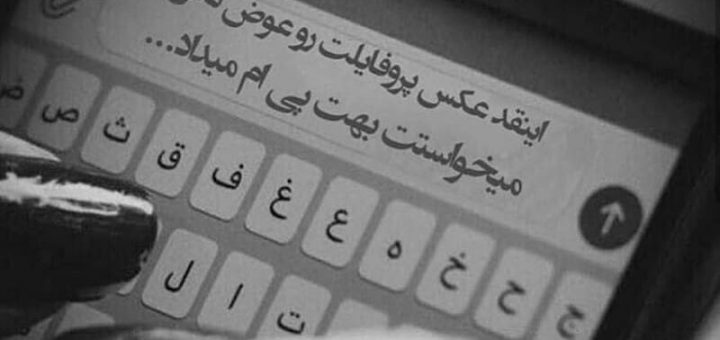 اینقد عکس پروفایلت رو عوض
میخواستت بهت پی ام میداد...
ض ص ث ق ف غ ع ه خ ح ج
ل ا ت